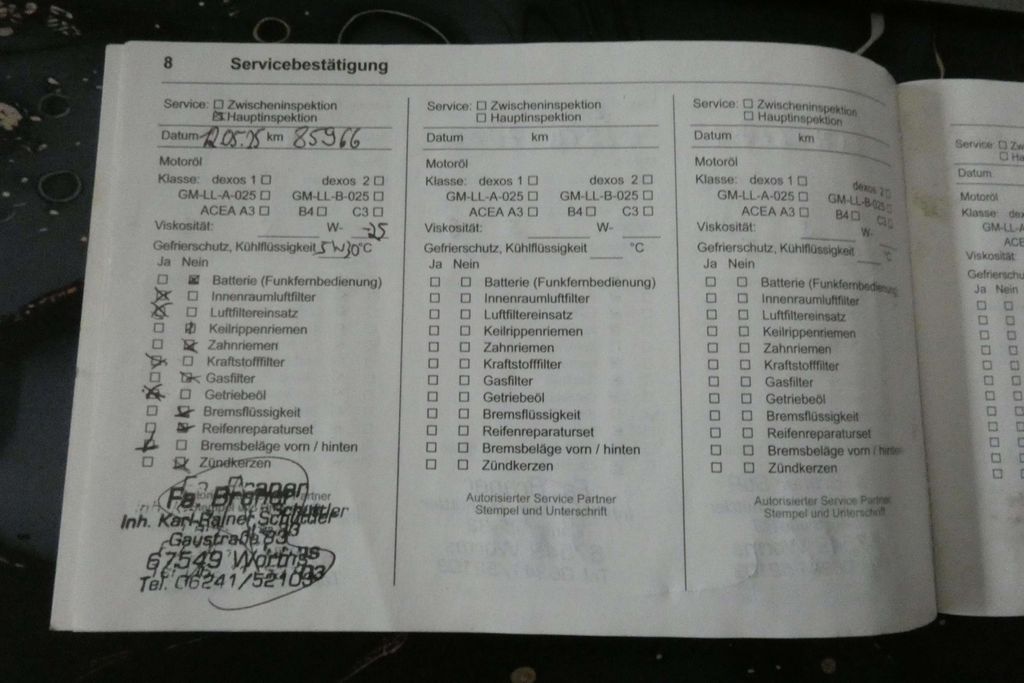 8 Servicebestätigung
Service: ☐ Zwischeninspektion
☒ Hauptinspektion
Datum km 85966
Motoröl
Klasse: dexos 1 ☐ dexos 2 ☐
GM-LL-A-025 ☐ GM-LL-B-025 ☐
ACEA A3 ☐ B4 ☐ C3 ☐
Viskosität: W- -25
Gefrierschutz, Kühlflüssigkeit 5W30 °C
Ja Nein
☐ ☒ Batterie (Funkfernbedienung)
☒ ☐ Innenraumluftfilter
☒ ☐ Luftfiltereinsatz
☐ ☒ Keilrippenriemen
☐ ☒ Zahnriemen
☒ ☐ Kraftstofffilter
☐ ☒ Gasfilter
☒ ☐ Getriebeöl
☐ ☒ Bremsflüssigkeit
☐ ☒ Reifenreparaturset
☒ ☐ Bremsbeläge vorn / hinten
☐ ☒ Zündkerzen
Inh. Karl-Rainer Schüttler
Gaustraße 83
67549 Worms
Tel. 06241/52103
Service: ☐ Zwischeninspektion
☐ Hauptinspektion
Datum km
Motoröl
Klasse: dexos 1 ☐ dexos 2 ☐
GM-LL-A-025 ☐ GM-LL-B-025 ☐
ACEA A3 ☐ B4 ☐ C3 ☐
Viskosität: W-
Gefrierschutz, Kühlflüssigkeit °C
Ja Nein
☐ ☐ Batterie (Funkfernbedienung)
☐ ☐ Innenraumluftfilter
☐ ☐ Luftfiltereinsatz
☐ ☐ Keilrippenriemen
☐ ☐ Zahnriemen
☐ ☐ Kraftstofffilter
☐ ☐ Gasfilter
☐ ☐ Getriebeöl
☐ ☐ Bremsflüssigkeit
☐ ☐ Reifenreparaturset
☐ ☐ Bremsbeläge vorn / hinten
☐ ☐ Zündkerzen
Autorisierter Service Partner
Stempel und Unterschrift
Service: ☐ Zwischeninspektion
☐ Hauptinspektion
Datum km
Motoröl
Klasse: dexos 1 ☐ dexos 2 ☐
GM-LL-A-025 ☐ GM-LL-B-025 ☐
ACEA A3 ☐ B4 ☐ C3 ☐
Viskosität: W-
Gefrierschutz, Kühlflüssigkeit °C
Ja Nein
☐ ☐ Batterie (Funkfernbedienung)
☐ ☐ Innenraumluftfilter
☐ ☐ Luftfiltereinsatz
☐ ☐ Keilrippenriemen
☐ ☐ Zahnriemen
☐ ☐ Kraftstofffilter
☐ ☐ Gasfilter
☐ ☐ Getriebeöl
☐ ☐ Bremsflüssigkeit
☐ ☐ Reifenreparaturset
☐ ☐ Bremsbeläge vorn / hinten
☐ ☐ Zündkerzen
Autorisierter Service Partner
Stempel und Unterschrift
Service: ☐
Datum
Motoröl
Klasse:
Viskosität:
Ja Nein